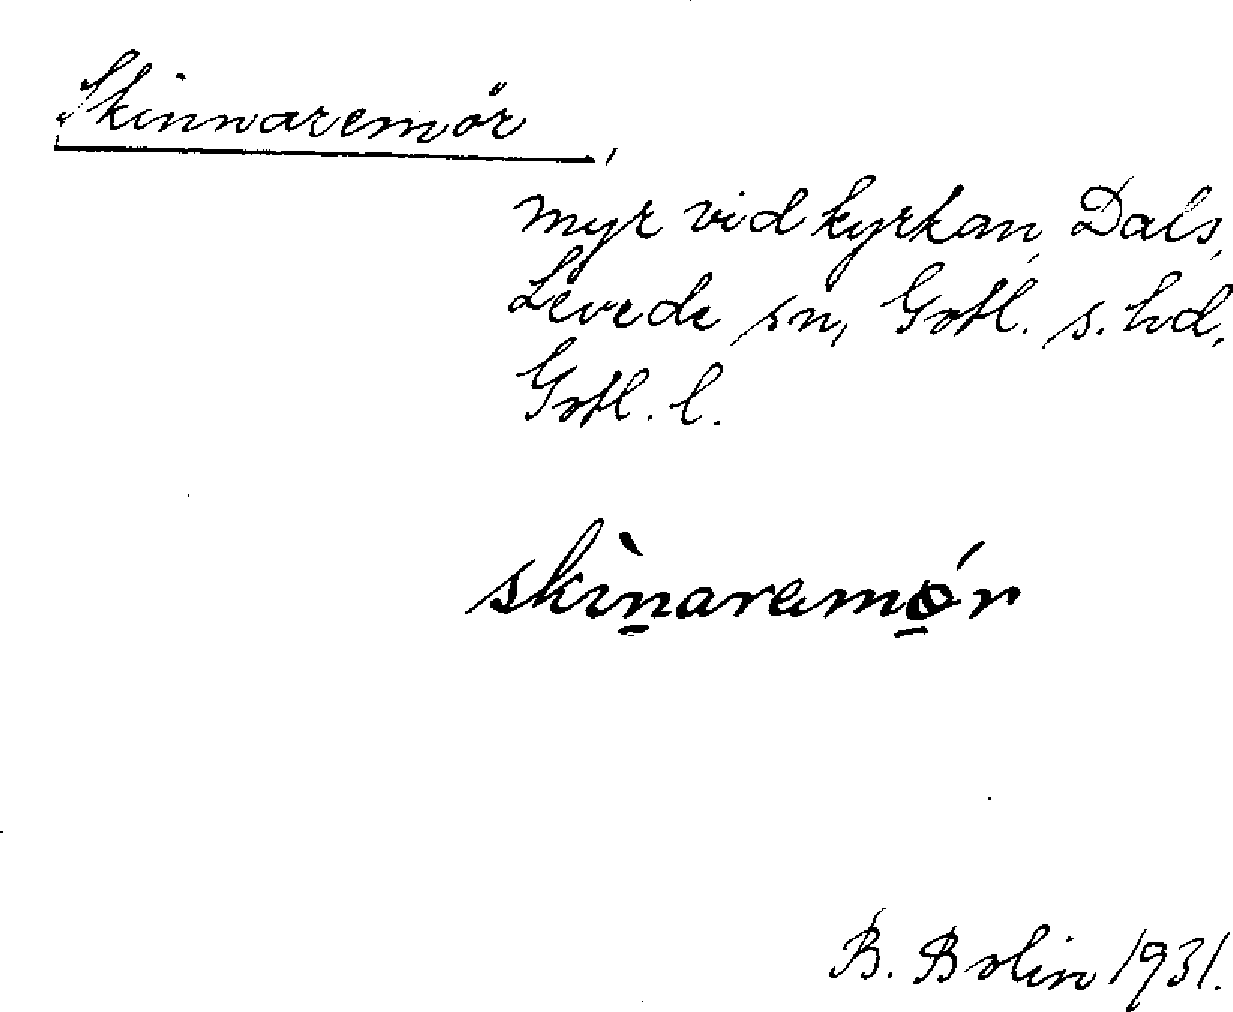 Skinnaremör,
myr vid kyrkan, Dals,
Levede sn, Gotl. s. hd,
Gotl. l.
skìnaramǿr
B. Bolin 1931.